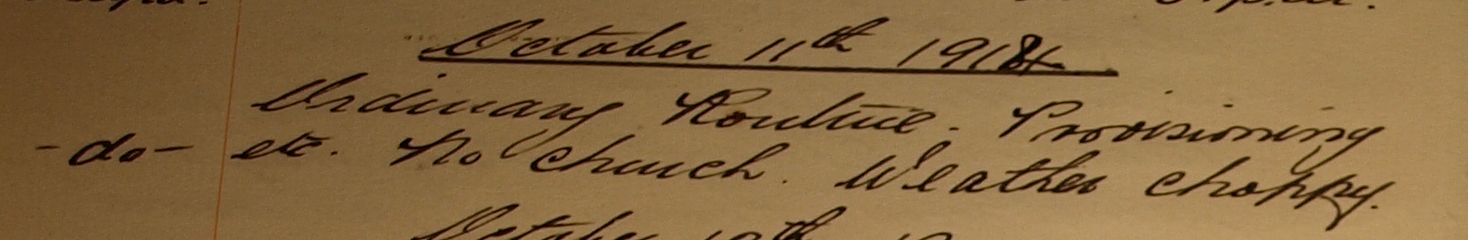 October 11th 1914
Ordinary Routine. Provisioning
-do- etc. No church. Weather choppy.
October